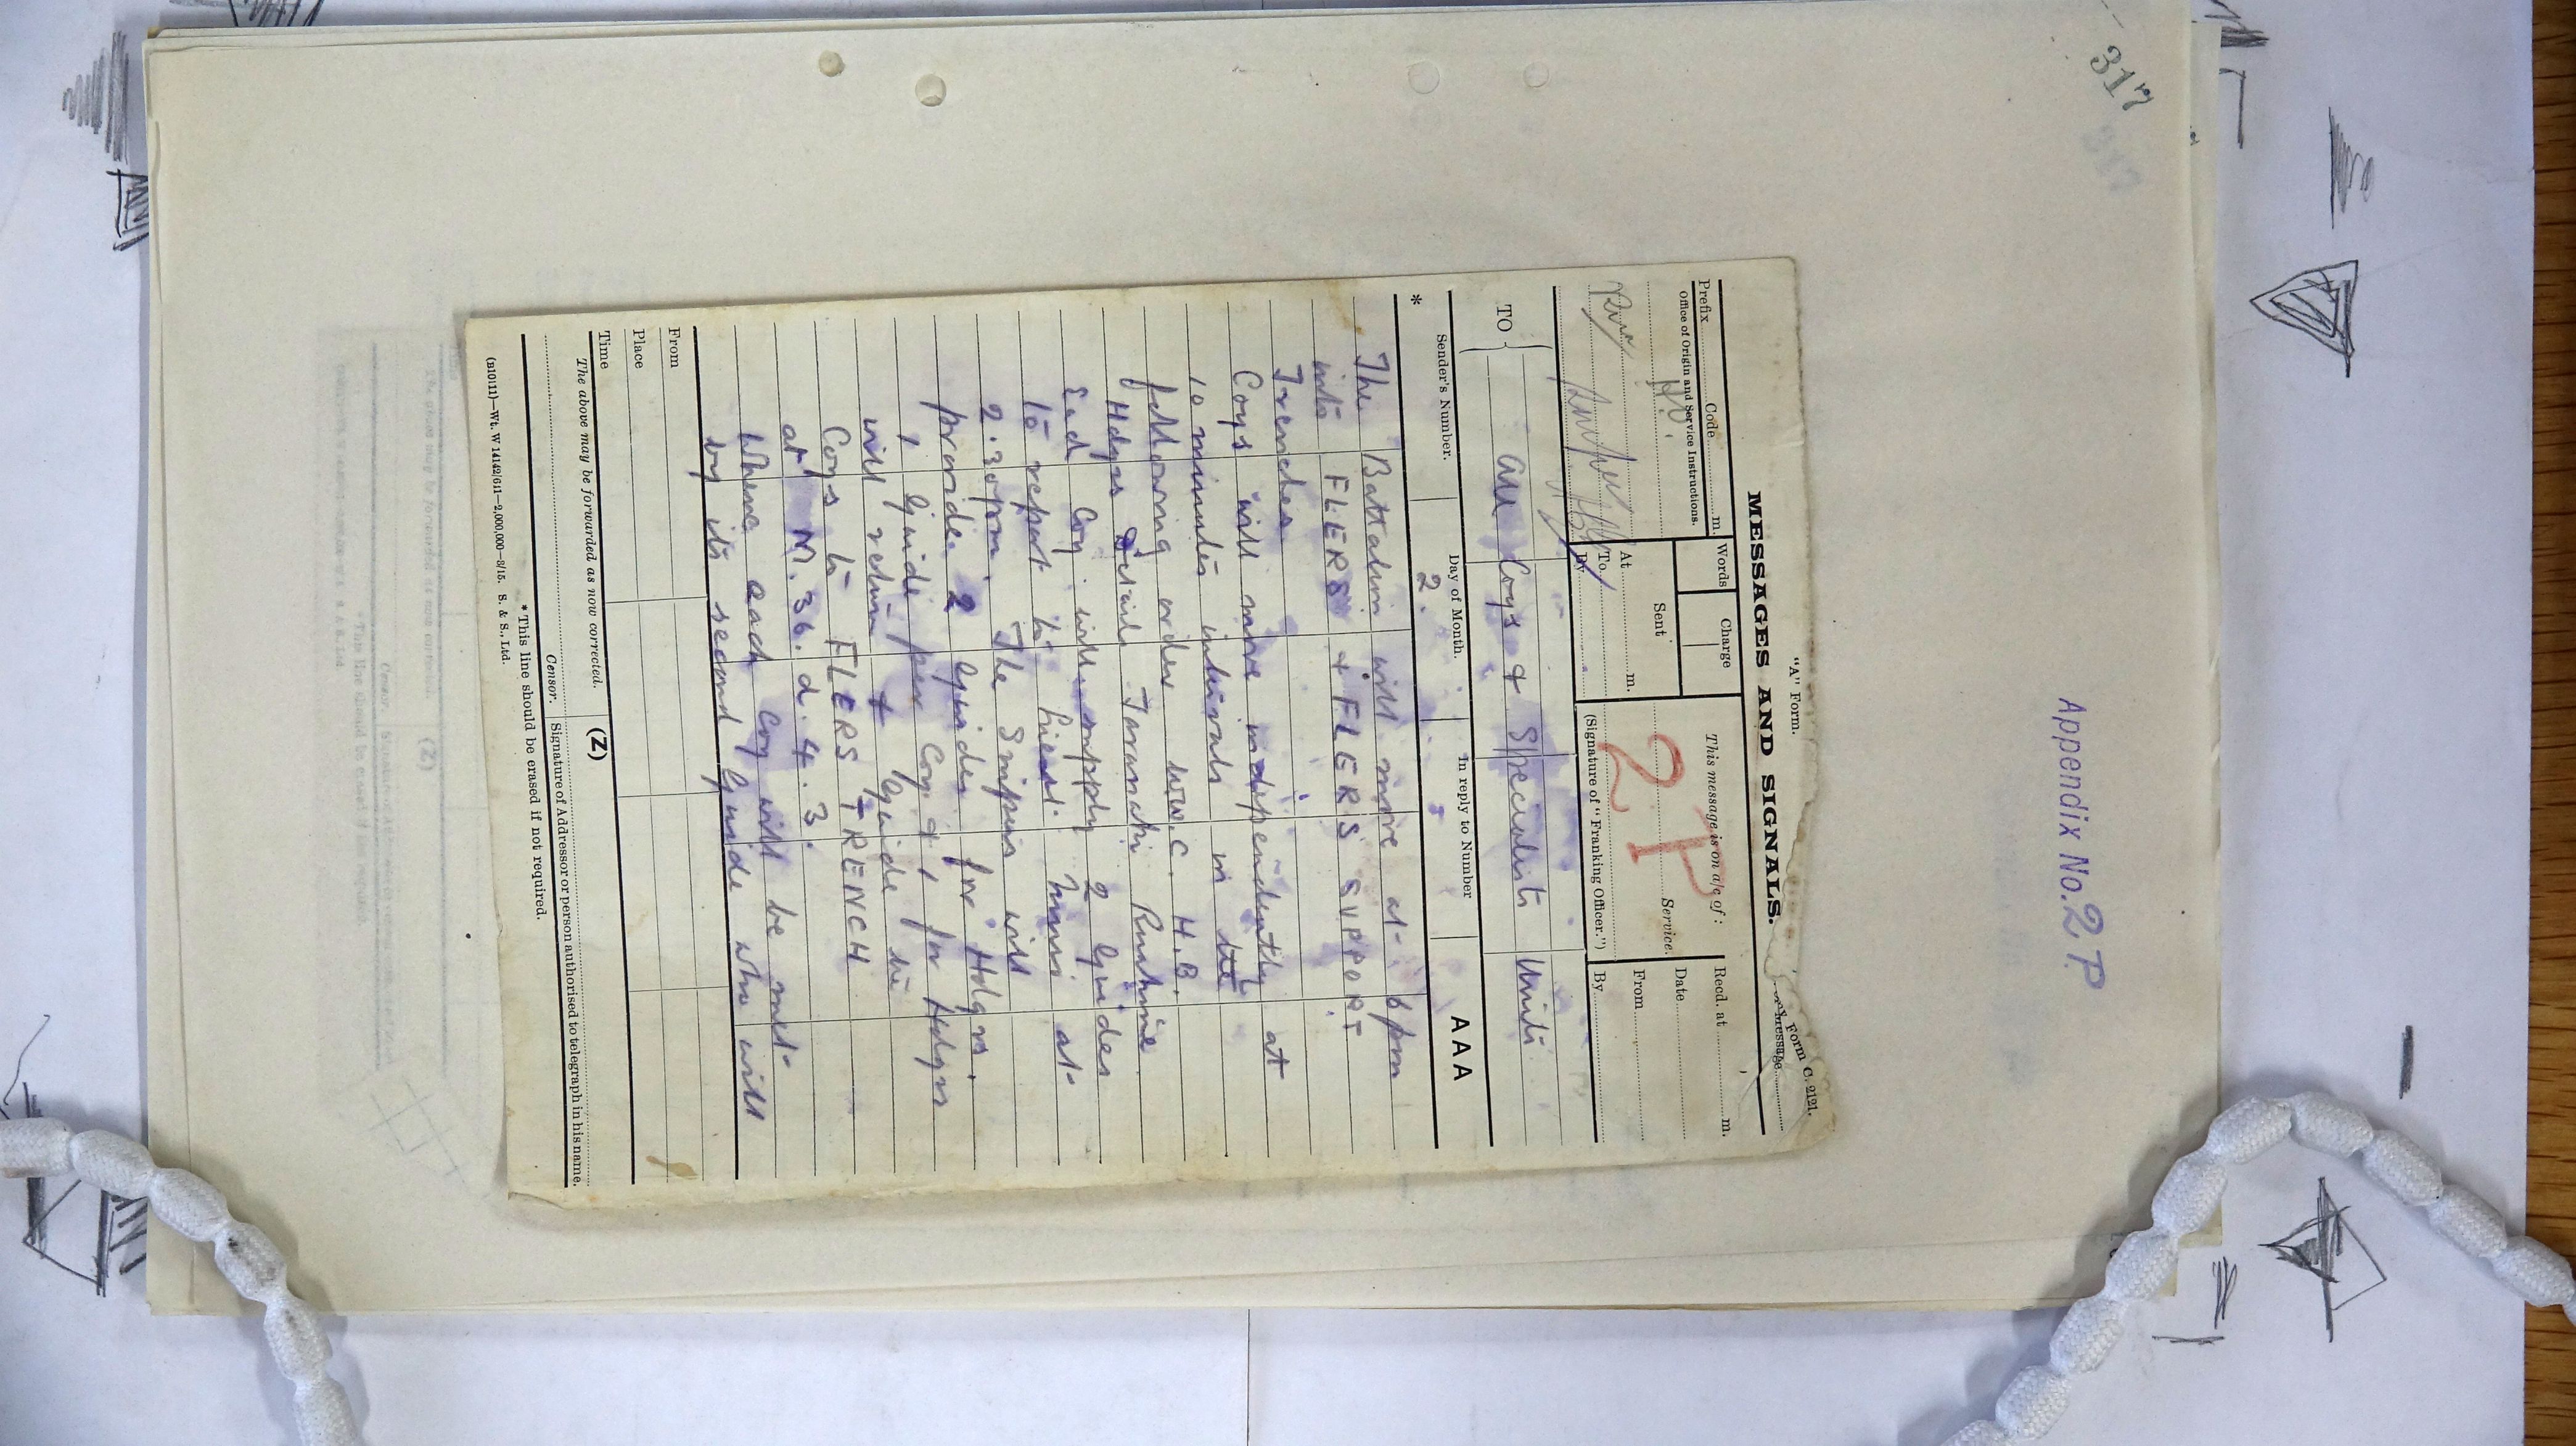 317
Appendix No. 2 P
"A" Form.
Form C. 2121.
MESSAGES AND SIGNALS.
Message
Prefix Code m.
Words Charge
This message is on a/c of:
Recd. at m.
Office of Origin and Service Instructions.
Sent
Date
2 P
Service.
At m.
From
To
By
(Signature of "Franking Officer.")
By
TO { All Coys & Specialist Units
Sender's Number. Day of Month. In reply to Number A A A
* 2.
The Battalion will move at 6 pm
into FLERS & FLERS SUPPORT
Trenches
Coys will move independently at
10 minutes intervals in the
following order WW. C. H.B.
Hdqrs Details Taranaki Ruahine
Each Coy will supply 2 Guides
to report to Lieut. at
2.30pm. The Snipers will
provide 2 Guides for Hdqrs.
1 Guide per Coy & 1 for Hdqrs
will return & Guide the
Coys to FLERS TRENCH
at M.36.d.4.3.
Where each Coy will be met
by its second Guide who will
From
Place
Time
The above may be forwarded as now corrected. (Z)
Censor. Signature of Addressor or person authorised to telegraph in his name.
* This line should be erased if not required.
(B1011)—Wt. W 14142/611—2,000,000—8/15. S. & S., Ltd.